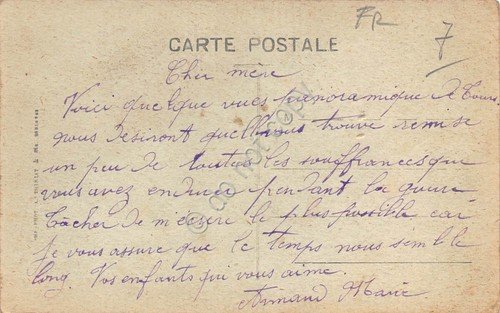 FR
7
CARTE POSTALE
Chir mère
Voici quelque vues panoramique de Tours
nous desiront quelle vous trouve remise
un peu de toutes les souffrances que
vous avez endure pendant la
tâcher de m'écrire le plus possible car
je vous assure que le temps nous semble
long. Vos enfants qui vous aime.
Armand Marie